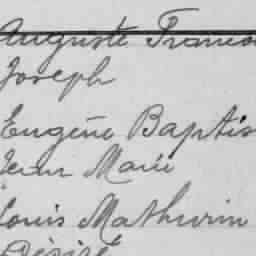 Auguste Francoi
Joseph
Eugène Baptis
Jean Marie
Louis Mathurin
Désiré